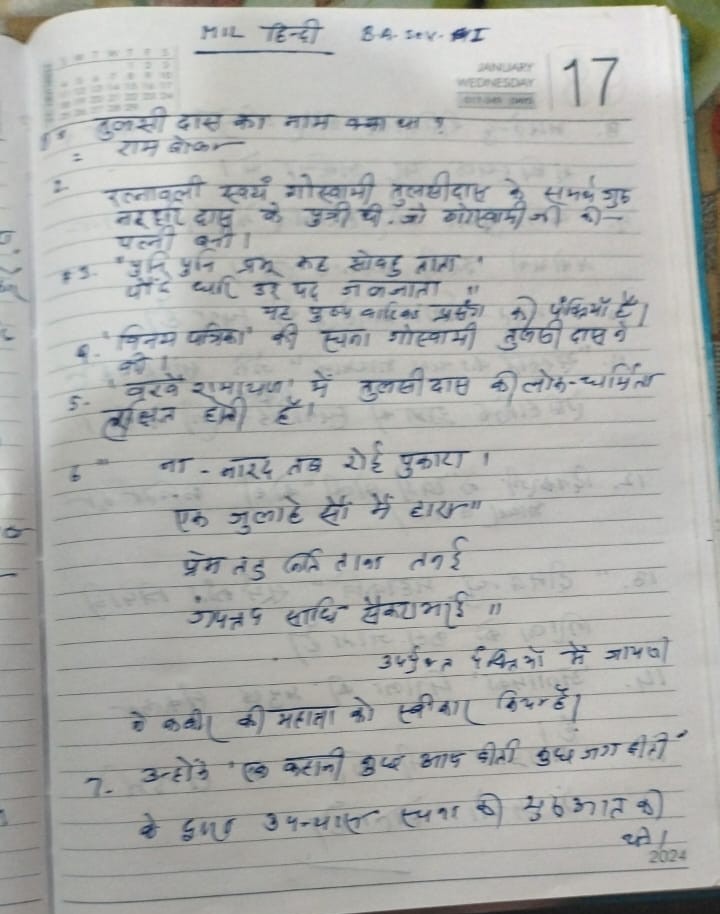 MIL हिन्दी B.A. Sem. I
JANUARY
WEDNESDAY
17
तुलसी दास का नाम क्या था ?
= राम बोला
2. रत्नावली स्वयं गोस्वामी तुलसीदास के समर्थ गुरु
नरहरि दास के पुत्री थी. जो गोस्वामी जी की
पत्नी बनी।
3. "पुनि पुनि प्रभु कह सोवहु ताता
पौढे धरि उर पद जलजाता"
यह पुष्प वाटिका प्रसंग की पंक्तियाँ हैं।
4. 'विनय पत्रिका' की रचना गोस्वामी तुलसी दास ने
की।
5- 'बरवै रामायण' में तुलसीदास की लोक-धर्मिता
लक्षित होती है।
6 " ना - नारद तब रोई पुकारा ।
एक जुलाहे सौ मैं हारा"
प्रेम तंतु तनई
साधि ॥
उपर्युक्त पंक्तियों में जायसी
ने कबीर की महत्ता को स्वीकार किया है।
7- उन्होंने "एक कहानी कुछ आप बीती कुछ जग बीती"
के द्वारा उपन्यास रचना की शुरुआत की
थी।
2024